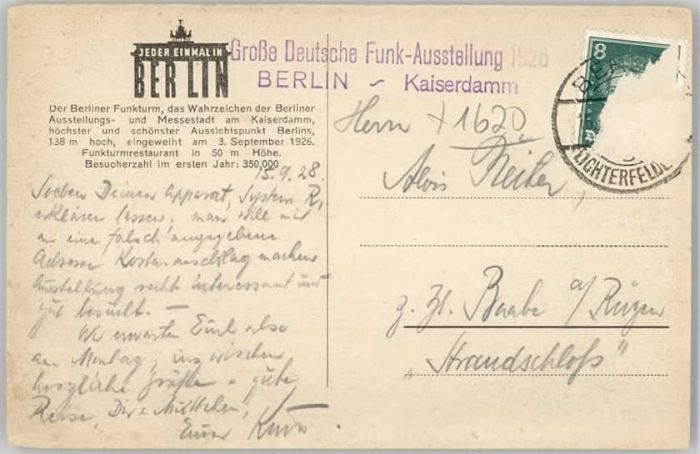 JEDER EINMAL IN
BERLIN
Große Deutsche Funk-Ausstellung 1928
BERLIN ~ Kaiserdamm
Der Berliner Funkturm, das Wahrzeichen der Berliner
Ausstellungs- und Messestadt am Kaiserdamm,
höchster und schönster Aussichtspunkt Berlins,
138 m hoch, eingeweiht am 3. September 1926.
Funkturmrestaurant in 50 m Höhe.
Besucherzahl im ersten Jahr: 350,000
15.9.28
Soeben Deinen Apparat, System R,
erklären lassen, man will mir
an eine falsch angegebene
Adresse Kostenanschlag machen
Ausstellung recht interessant und
gut besucht. —
Wir erwarten Euch also
am Montag, inzwischen
herzliche Grüße u. gute
Reise, Dir u.
Euer Kurt
8
LICHTERFELDE
Herrn + 1620
Alois Reiter,
z. Zt. Baabe a/Rügen
„Strandschloß"